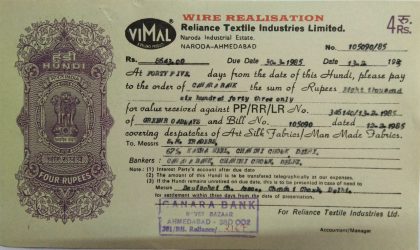 VIMAL
WIRE REALISATION
Reliance Textile Industries Limited.
Naroda Industrial Estate.
NARODA-AHMEDABAD
No. 105090/85
4 रु.
Rs.
हुंडी
HUNDI
FOUR RUPEES
Rs. 8643.00 Due Date 30.3.1985 Date 13.2 198
At FORTY FIVE days from the date of this Hundi, please pay
to the order of CANARA BANK the sum of Rupees Eight thousand
six hundred forty three only
for value received against PP/RR/LR No. 13.2.1985
of and Bill No. 105090 dated 12.2.1985
covering despatches of Art Silk Fabrics/Man Made Fabrics.
To Messrs
CHANDNI CHOWK DELHI
Bankers : CANARA BANK, CHANDNI CHOWK, DELHI.
Note : (1) Interest Party's account after due date
(2) The amount of this Hundi is to be transferred telegraphically at our expenses.
(3) If the Hundi remains unretired on due date, this is to be presented in case of need to
Messrs Chandni Chowk Delhi.
for settlement within three days from the date of presentation.
CANARA BANK
BAZAAR
AHMEDABAD - 380 002
For Reliance Textile Industries Ltd.
Accountant/Manager